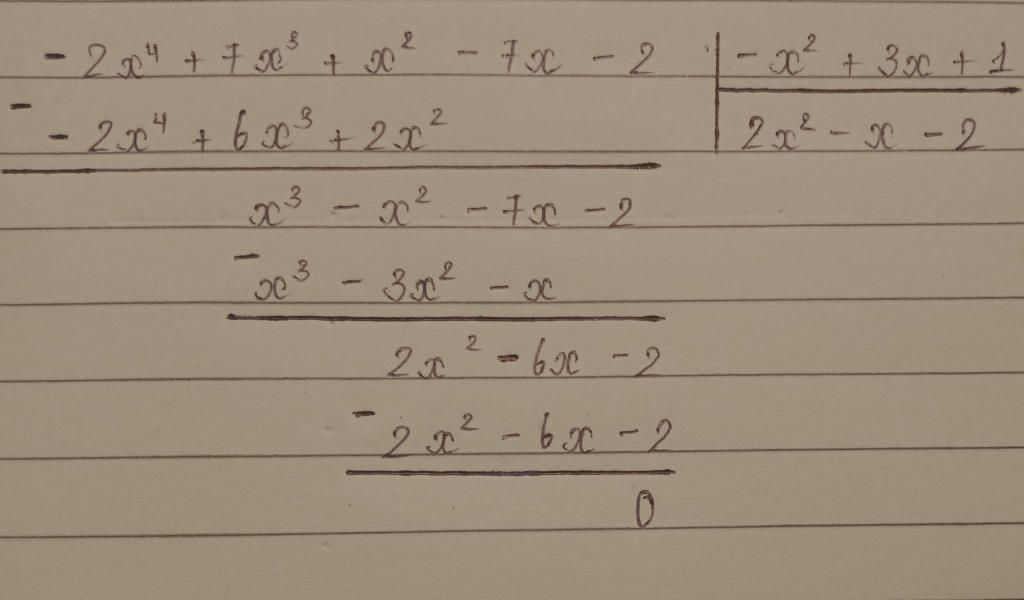 - 2x⁴ + 7x³ + x² - 7x - 2 | - x² + 3x + 1
- - 2x⁴ + 6x³ + 2x² | 2x² - x - 2
x³ - x² - 7x - 2
- x³ - 3x² - x
2x² - 6x - 2
- 2x² - 6x - 2
0